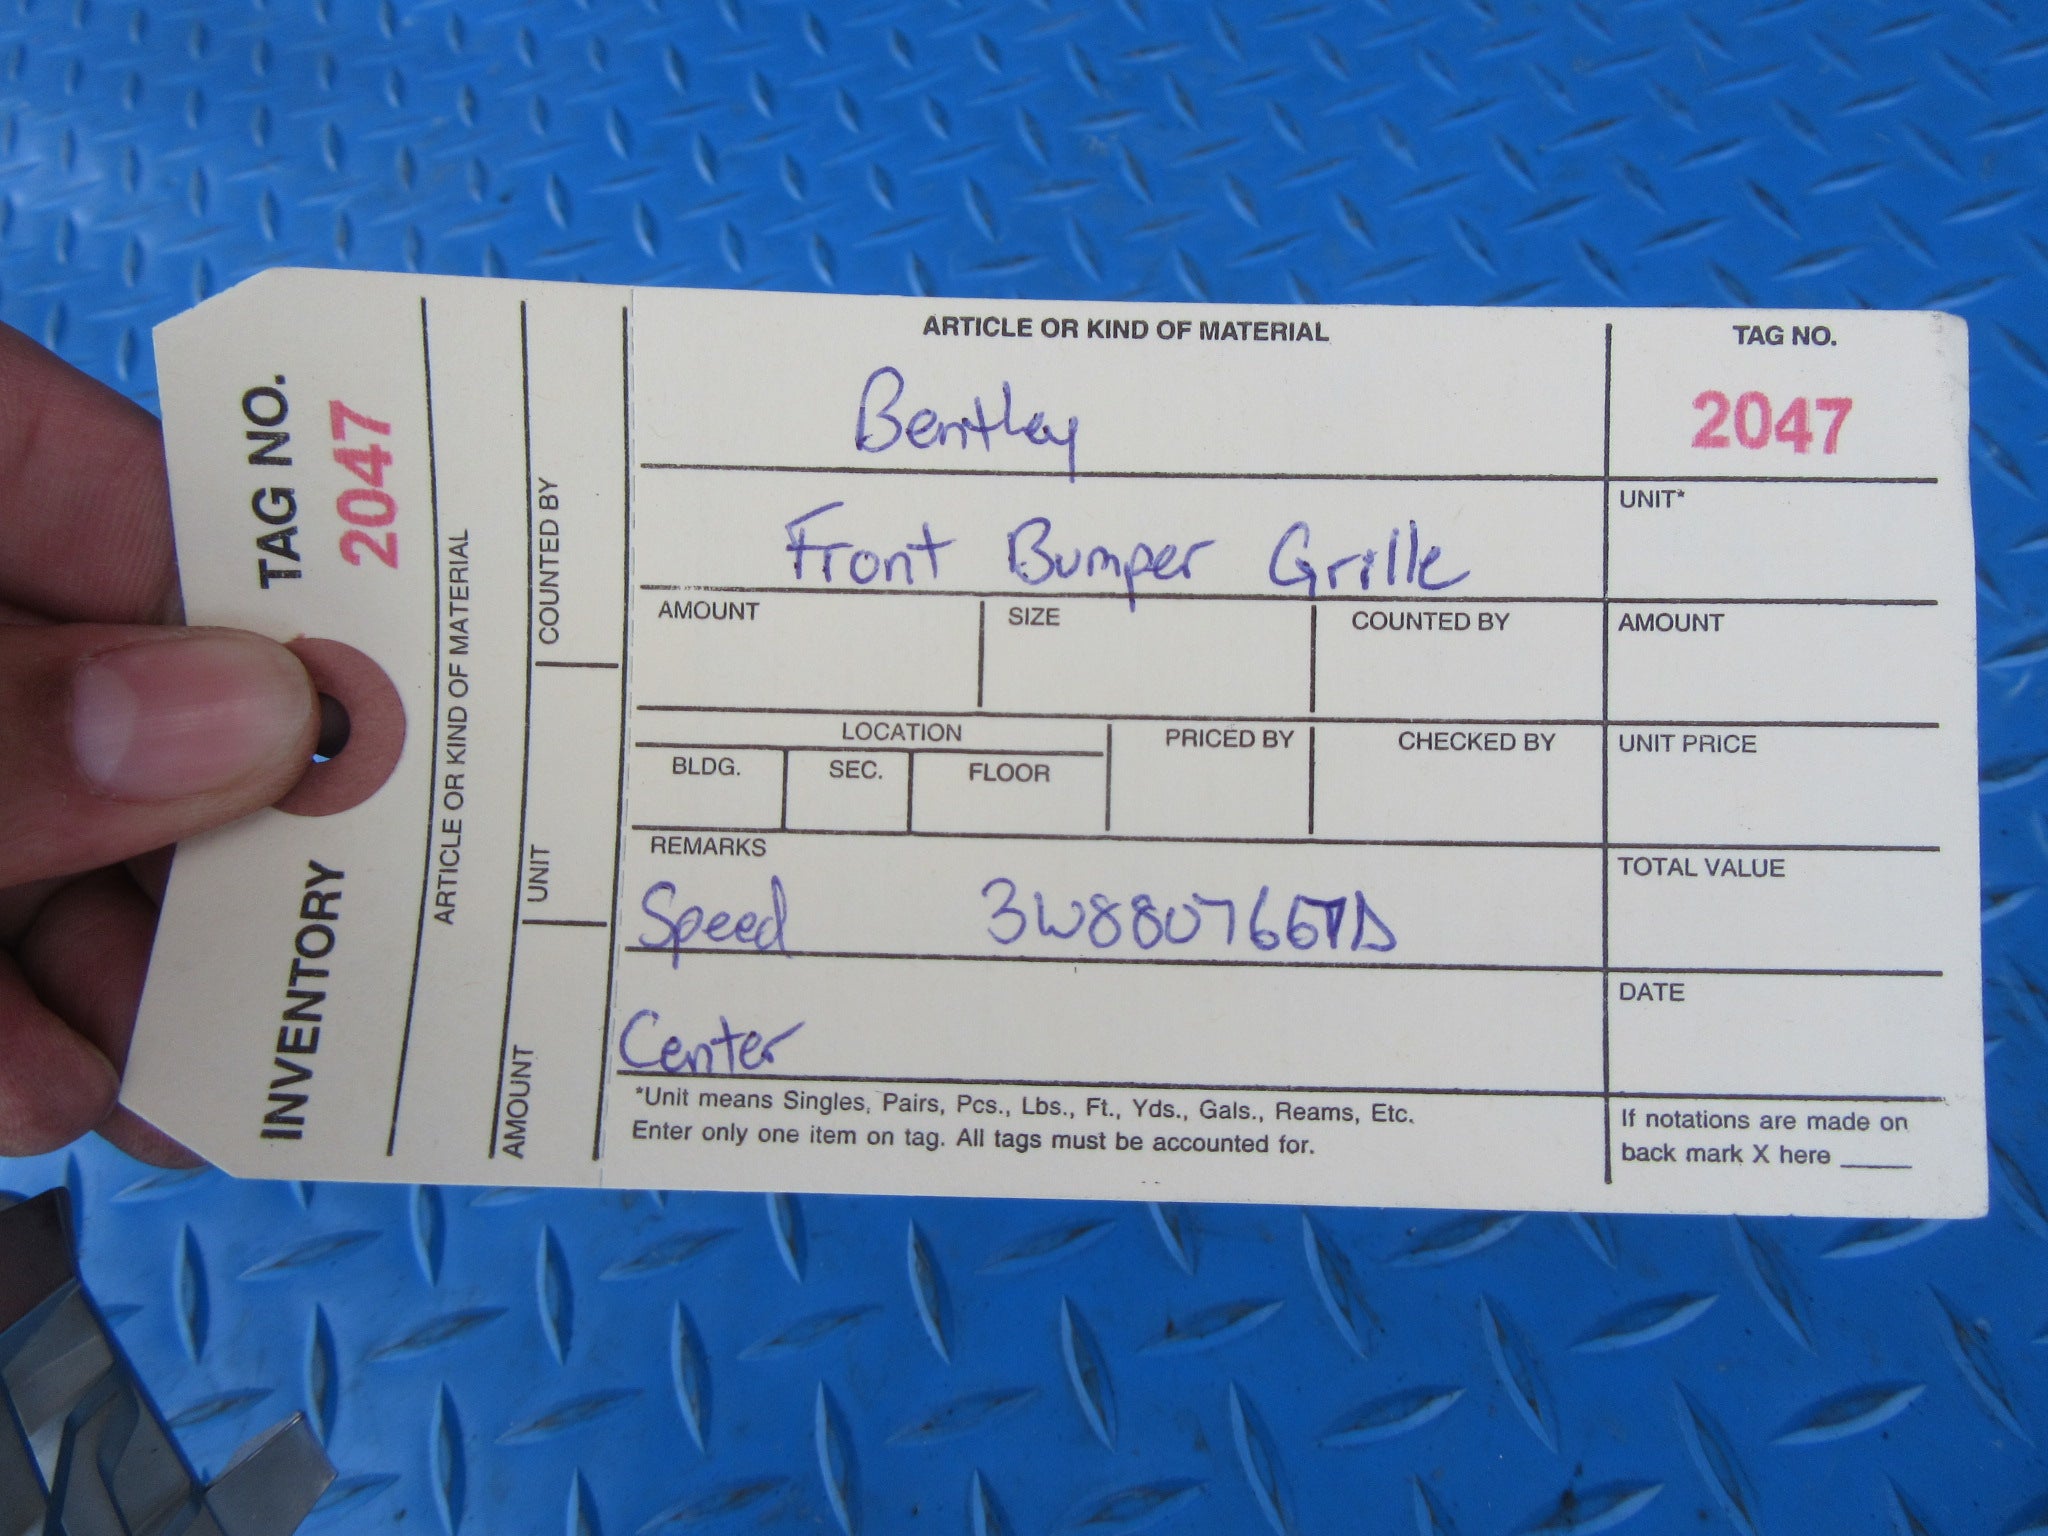 INVENTORY TAG NO.
2047
ARTICLE OR KIND OF MATERIAL
AMOUNT UNIT COUNTED BY
ARTICLE OR KIND OF MATERIAL TAG NO.
Bentley 2047
UNIT*
Front Bumper Grille
AMOUNT SIZE COUNTED BY AMOUNT
LOCATION PRICED BY CHECKED BY UNIT PRICE
BLDG. SEC. FLOOR
REMARKS TOTAL VALUE
Speed
DATE
Center
*Unit means Singles, Pairs, Pcs., Lbs., Ft., Yds., Gals., Reams, Etc. If notations are made on
Enter only one item on tag. All tags must be accounted for. back mark X here _____